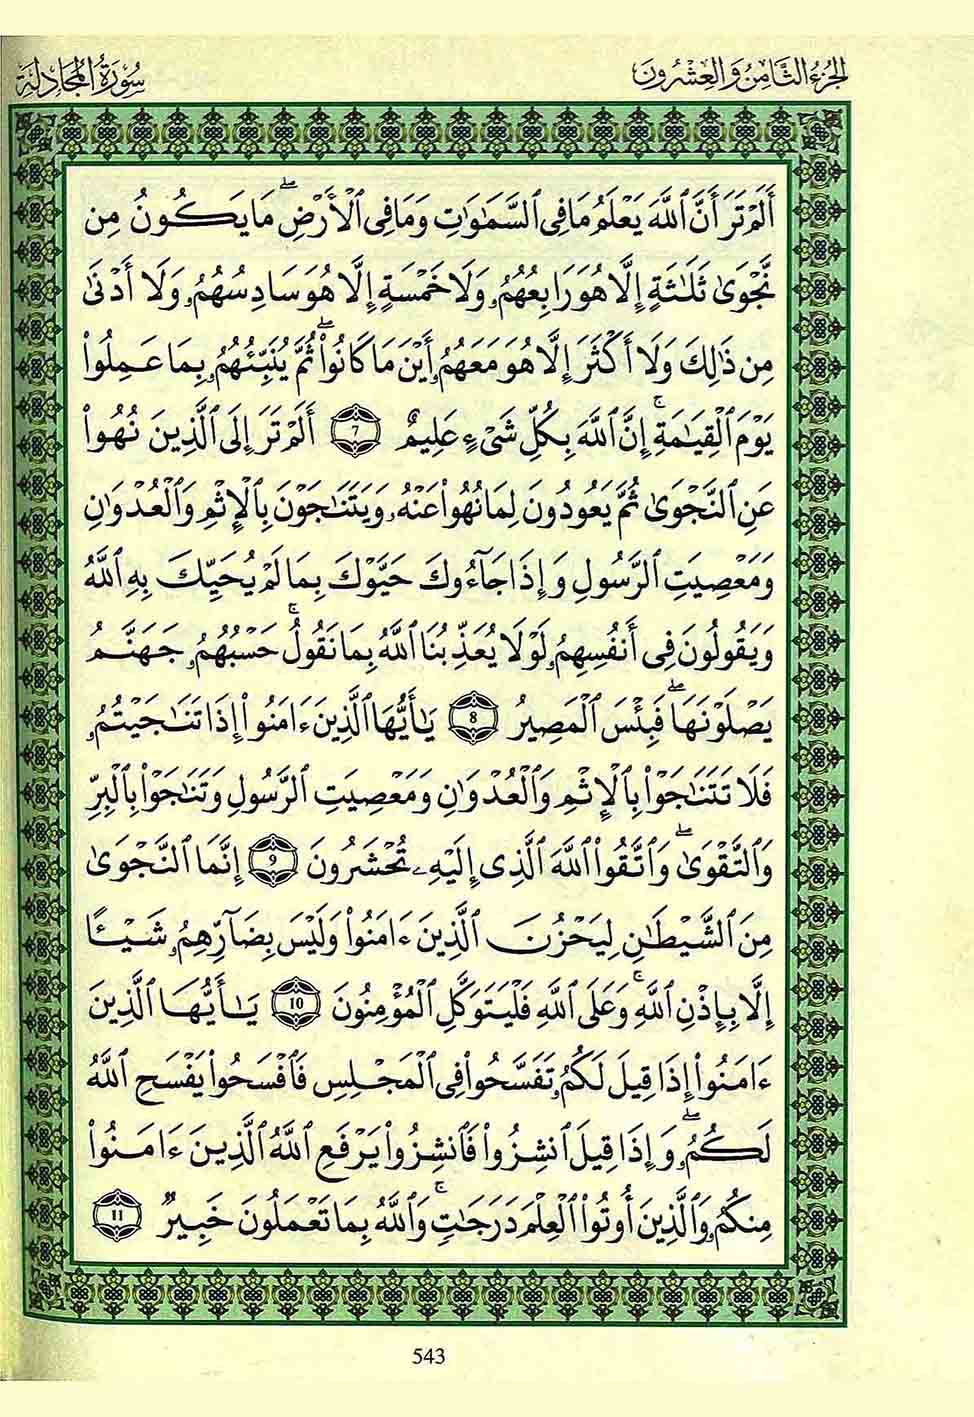 الجُزْءُ الثَّامِنُ وَالعِشْرُونَ
سُورَةُ المُجَادِلَة
أَلَمْ تَرَ أَنَّ ٱللَّهَ يَعْلَمُ مَا فِي ٱلسَّمَٰوَٰتِ وَمَا فِي ٱلْأَرْضِۖ مَا يَكُونُ مِن
نَّجْوَىٰ ثَلَٰثَةٍ إِلَّا هُوَ رَابِعُهُمُۥ وَلَا خَمْسَةٍ إِلَّا هُوَ سَادِسُهُمُۥ وَلَا أَدْنَىٰ
مِن ذَٰلِكَ وَلَا أَكْثَرَ إِلَّا هُوَ مَعَهُمُۥ أَيْنَ مَا كَانُوا۟ۖ ثُمَّ يُنَبِّئُهُمُۥ بِمَا عَمِلُوا۟
يَوْمَ ٱلْقِيَٰمَةِۚ إِنَّ ٱللَّهَ بِكُلِّ شَيْءٍ عَلِيمٌ 7 أَلَمْ تَرَ إِلَى ٱلَّذِينَ نُهُوا۟
عَنِ ٱلنَّجْوَىٰ ثُمَّ يَعُودُونَ لِمَا نُهُوا۟ عَنْهُۥ وَيَتَنَٰجَوْنَ بِٱلْإِثْمِ وَٱلْعُدْوَٰنِ
وَمَعْصِيَتِ ٱلرَّسُولِ وَإِذَا جَآءُوكَ حَيَّوْكَ بِمَا لَمْ يُحَيِّكَ بِهِ ٱللَّهُ
وَيَقُولُونَ فِي أَنفُسِهِمُۥ لَوْلَا يُعَذِّبُنَا ٱللَّهُ بِمَا نَقُولُۚ حَسْبُهُمُۥ جَهَنَّمُ
يَصْلَوْنَهَاۖ فَبِئْسَ ٱلْمَصِيرُ 8 يَٰأَيُّهَا ٱلَّذِينَ ءَامَنُوا۟ إِذَا تَنَٰجَيْتُمُۥ
فَلَا تَتَنَٰجَوْا۟ بِٱلْإِثْمِ وَٱلْعُدْوَٰنِ وَمَعْصِيَتِ ٱلرَّسُولِ وَتَنَٰجَوْا۟ بِٱلْبِرِّ
وَٱلتَّقْوَىٰۖ وَٱتَّقُوا۟ ٱللَّهَ ٱلَّذِي إِلَيْهِۦ تُحْشَرُونَ 9 إِنَّمَا ٱلنَّجْوَىٰ
مِنَ ٱلشَّيْطَٰنِ لِيَحْزُنَ ٱلَّذِينَ ءَامَنُوا۟ وَلَيْسَ بِضَآرِّهِمُۥ شَيْـًٔا
إِلَّا بِإِذْنِ ٱللَّهِۚ وَعَلَى ٱللَّهِ فَلْيَتَوَكَّلِ ٱلْمُؤْمِنُونَ 10 يَٰأَيُّهَا ٱلَّذِينَ
ءَامَنُوا۟ إِذَا قِيلَ لَكُمُۥ تَفَسَّحُوا۟ فِي ٱلْمَجْلِسِ فَٱفْسَحُوا۟ يَفْسَحِ ٱللَّهُ
لَكُمُۥۖ وَإِذَا قِيلَ ٱنشِزُوا۟ فَٱنشِزُوا۟ يَرْفَعِ ٱللَّهُ ٱلَّذِينَ ءَامَنُوا۟
مِنكُمُۥ وَٱلَّذِينَ أُوتُوا۟ ٱلْعِلْمَ دَرَجَٰتٍۚ وَٱللَّهُ بِمَا تَعْمَلُونَ خَبِيرٌ 11
543